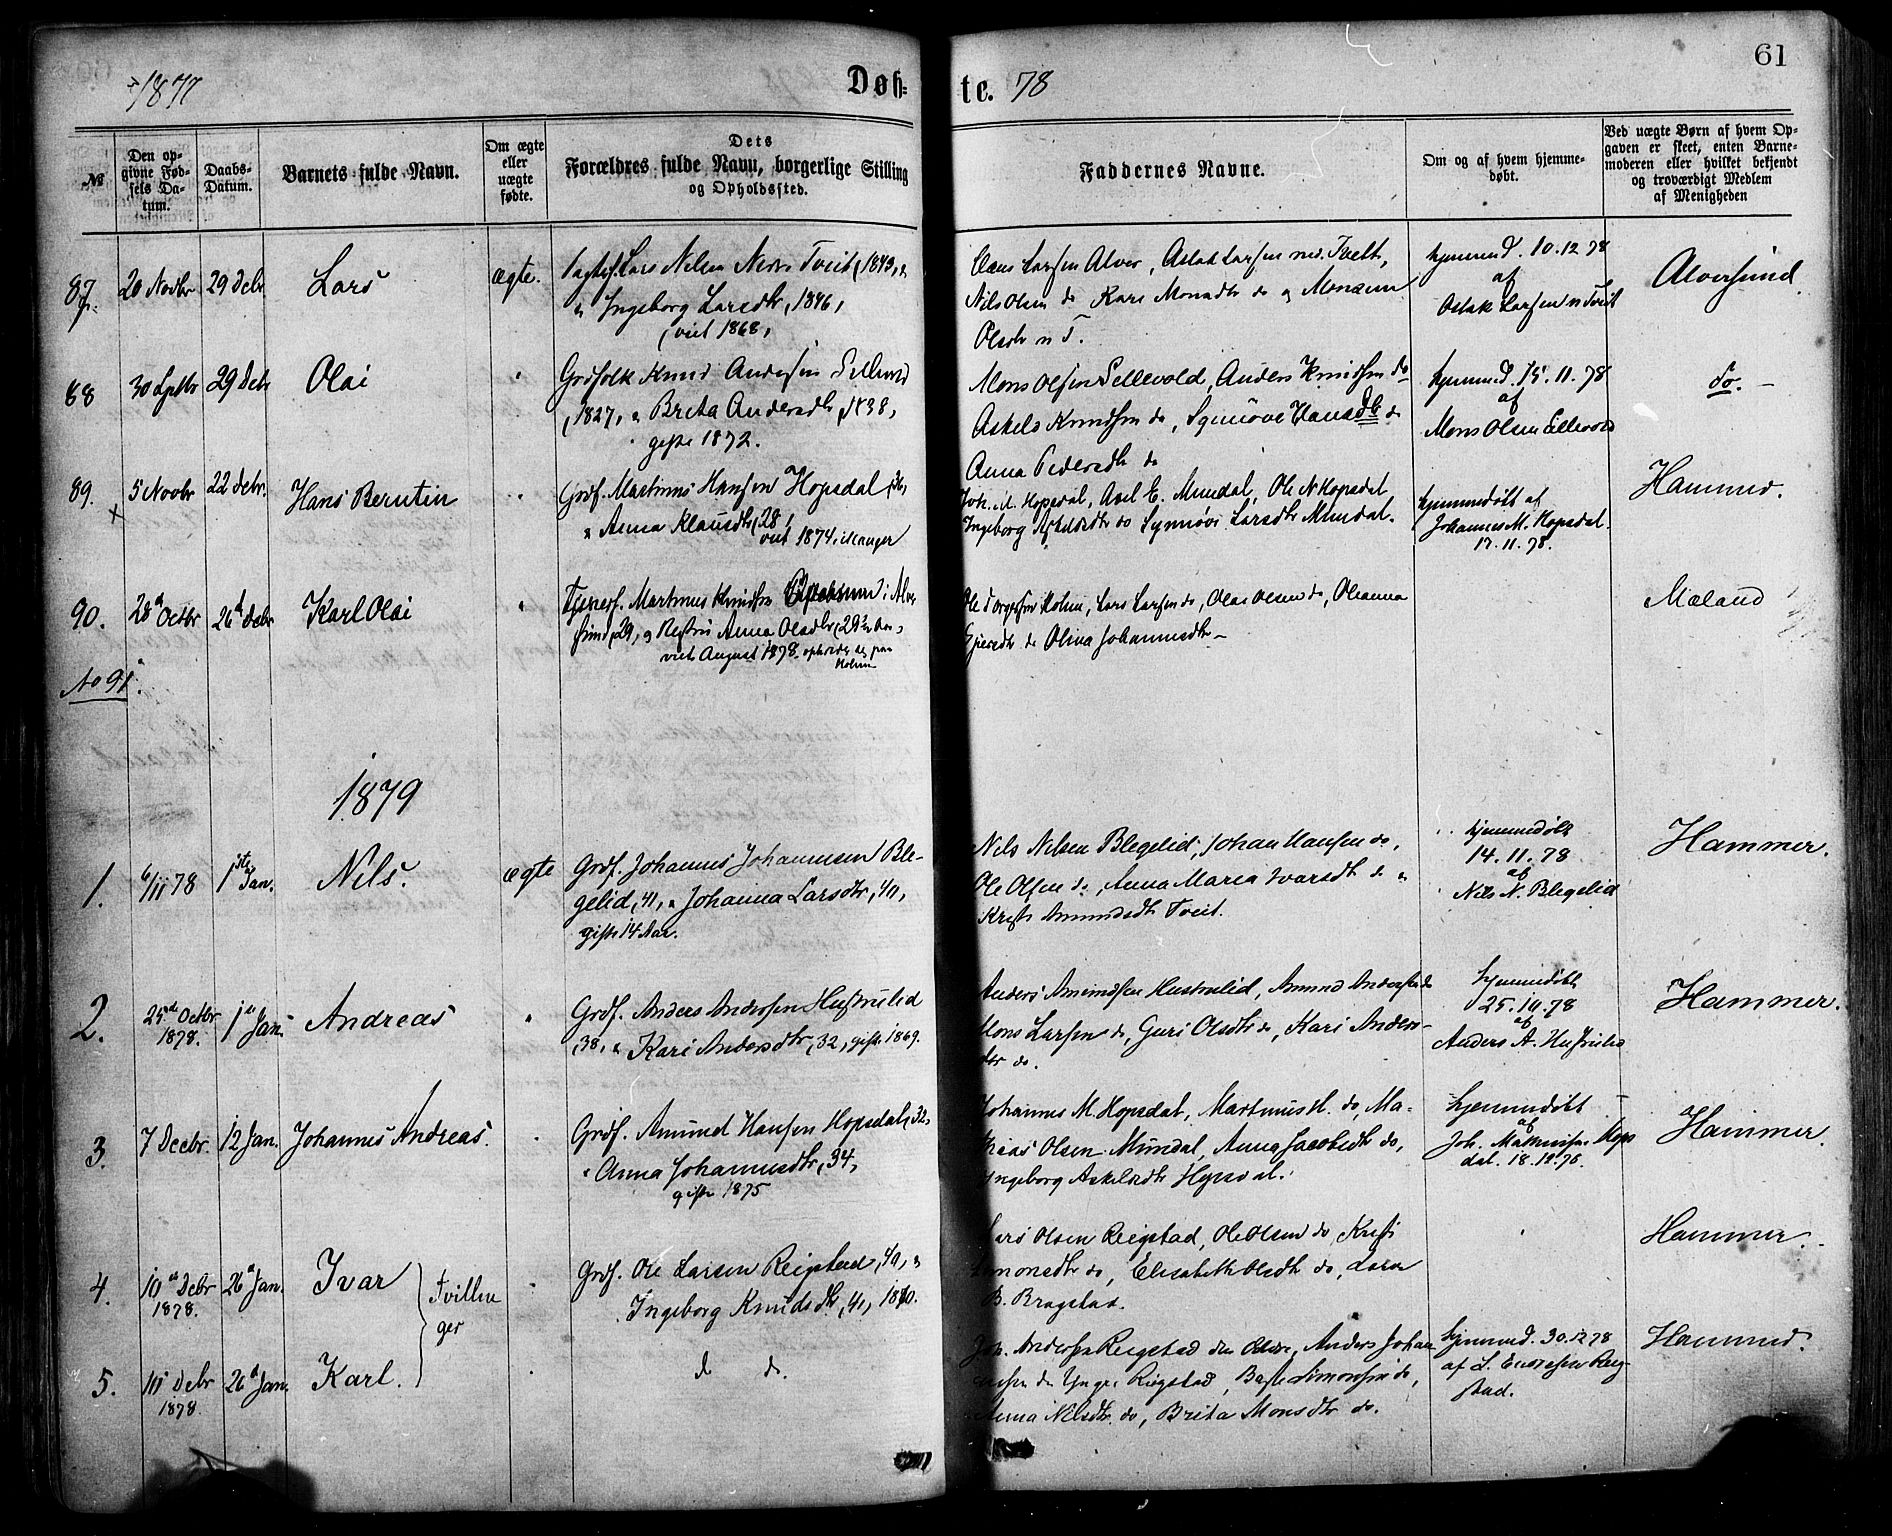 61
1877 Døb-
te. 78
№
Den op-
givne Fød-
sels Da-
tum.
Daabs-
Datum.
Barnets fulde Navn.
Om ægte
eller
uægte
fødte.
Dets
Forældres fulde Navn, borgerlige Stilling
og Opholdssted.
Faddernes Navne.
Om og af hvem hjemme-
døbt.
Ved uægte Børn af hvem Op-
gaven er skeet, enten Barne-
moderen eller hvilket bekjendt
og troværdigt Medlem
af Menigheden
87. 20 Novbr 29 Debr Lars ægte. Lars Nilsen Nedre Tveit, 1843,
Ingeborg Larsdtr, 1846,
viet 1868,
Claus Larsen Alver, Aslak Larsen ned. Tveit,
Nils Olsen do Kari Monsdtr do og
Olsdtr n T.
hjemmed. 10.12 78
af
Aslak Larsen n Tveit
Alversund
88 30 Septbr 29 Debr Olai Grdfolk Knud Andersen
1827, Brita Andersdtr, 1838,
gifte 1872.
Mons Olsen Sellevold, Anders Knudsen do
Askild Knudsen do, Synnøve Hansdtr do
Anna Pedersdtr do
hjemmed. 15.11.78
af
Mons Olsen Sellevold
do. -
89. 5 Novbr 22 Debr. Hans Berntin Grdf. Martinus Hansen Hopsdal, 36,
Anna Klausdtr, 28,
viet 1874 i Manger
Joh. M. Hopsdal, Axel E. Mundal, Ole N Hopsdal
Ingeborg Askildsdtr do Synnøve Larsdtr Mundal.
hjemmedøbt af
Johannes M. Hopsdal.
17.11.78.
Hammer.
90. 28d Octbr 26d Debr Karl Olai Martinus Knudsen i Alver
sund, 29, og Anna Olsdtr, 29
viet August 1878. opholde sig paa
Holm
Ole Holm, Lars Larsen do, Olai Olsen do, Oleanna
do Olina Johannesdtr -
Mæland
No 91.
1879
1. 6/11 78 1ste Jan. Nils. ægte Grdf. Johannes Johannesen Ble-
gelid, 41, Johanna Larsdtr, 40,
gifte 14 Aar.
Nils Nilsen Blegelid, Johan Hansen do,
Ole Olsen do, Anna Maria Ivarsdtr do
Kristi Amundsdtr Tveit.
hjemmedøbt
14.11.78
af
Nils N. Blegelid
Hammer.
2. 25de Octbr
1878. 1ste Jan. Andreas Grdf. Anders Andersen Hustrulid
38, Kari Andersdtr, 32, gifte 1869.
Anders Amundsen Hustrulid, Amund Andersen do
Mons Larsen do, Guri Olsdtr do, Kari Anders-
dtr do.
hjemmedøbt
25.10.78
af
Anders A. Hustrulid
Hammer.
3. 7 Decbr. 12 Jan. Johannes Andreas. Grdf. Amund Hansen Hopsdal, 32,
Anna Johannesdtr, 34,
gifte 1875
Johannes M. Hopsdal, Martinus H. do, Ma-
thias Olsen Mundal, Anna Jacobsdtr do,
Ingeborg Askildsdtr Hopsdal.
hjemmedøbt
af
Joh. Mathiasen Hops
dal. 18.12.78.
Hammer.
4. 10de Debr
1878. 26d Jan. Ivar Grdf. Ole Larsen Reigstad, 40,
Ingeborg Knudsdtr, 41, 1870.
Lars Olsen Reigstad, Ole Olsen do, Kristi
Simonsdtr do, Elisabeth Olsdtr do, Lars
B. Bragstad.
Hammer.
Tvillin
ger
5. 10 Debr
1878. 26d Jan. Karl. d do.
Joh. Andersen Reigstad den Ældre, Anders Johan
nesen den Yngre Reigstad, Simonsen do,
Anna Nilsdtr do, Brita Monsdtr do.
hjemmed. 30.12 78
af L. Endresen Reig-
stad.
Hammer.